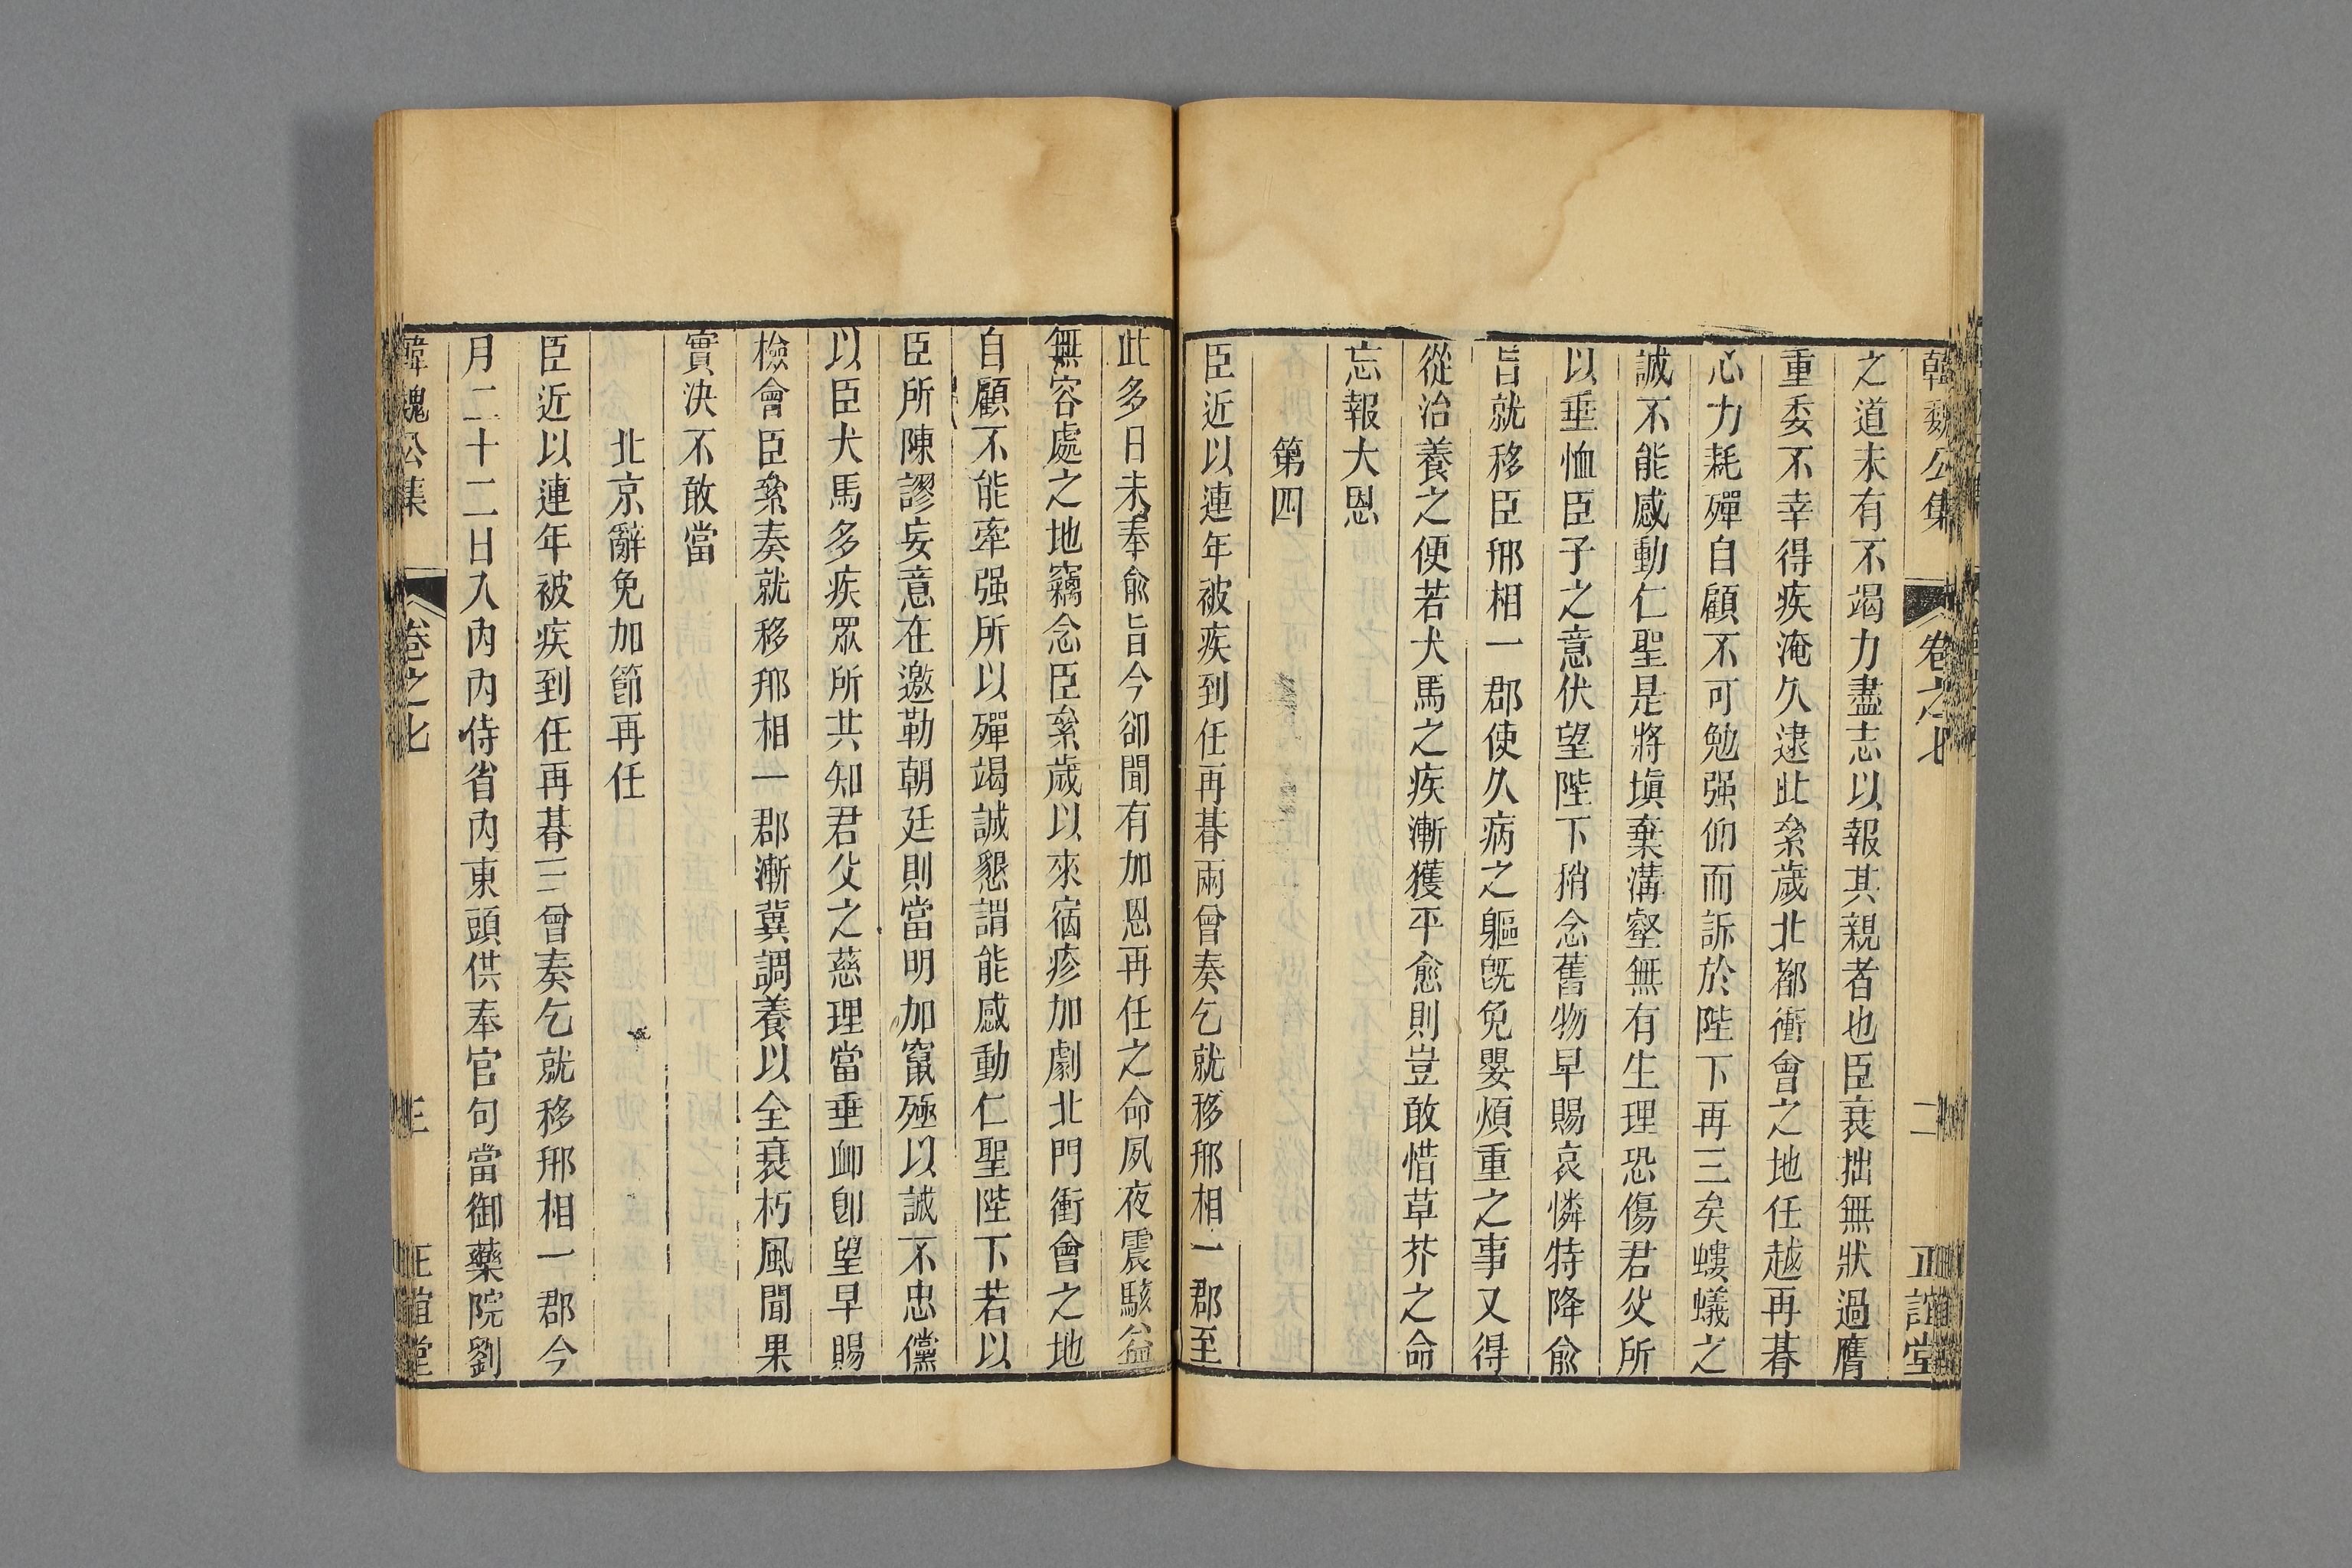 韓魏公集 卷之七 二 正誼堂
之道未有不竭力盡志以報其親者也臣衰拙無狀過膺
重委不幸得疾淹久逮此絫歲北都衝會之地任越再朞
心力耗殫自顧不可勉强仰而訴於陛下再三矣螻蟻之
誠不能感動仁聖是將塡棄溝壑無有生理恐傷君父所
以垂恤臣子之意伏望陛下稍念舊物早賜哀憐特降兪
旨就移臣邢相一郡使久病之軀旣免嬰煩重之事又得
從治養之便若犬馬之疾漸獲平愈則豈敢惜草芥之命
忘報大恩
第四
臣近以連年被疾到任再朞兩曾奏乞就移邢相一郡至
此多日未奉兪旨今卻聞有加恩再任之命夙夜震駭益
無容處之地竊念臣絫歲以來宿疹加劇北門衝會之地
自顧不能牽强所以殫竭誠懇謂能感動仁聖陛下若以
臣所陳謬妄意在邀勒朝廷則當明加竄殛以誠不忠儻
以臣犬馬多疾眾所共知君父之慈理當垂卹卽望早賜
檢會臣絫奏就移邢相一郡漸冀調養以全衰朽風聞果
實決不敢當
北京辭免加節再任
臣近以連年被疾到任再朞三曾奏乞就移邢相一郡今
月二十二日入內內侍省內東頭供奉官句當御藥院劉
韓魏公集 卷之七 三 正誼堂